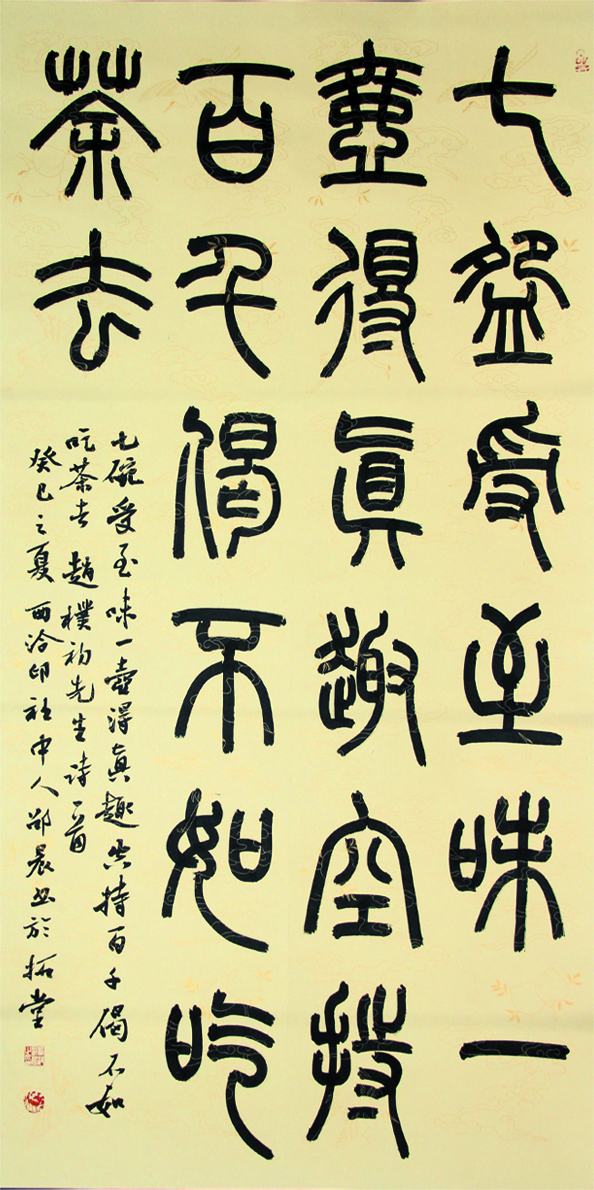 七盌受至味一
壺得真趣空持
百千偈不如吃
茶去
七碗受至味一壺得真趣空持百千偈不如
吃茶去 趙樸初先生詩一首
癸巳之夏西泠印社中人邵晨書於拓堂